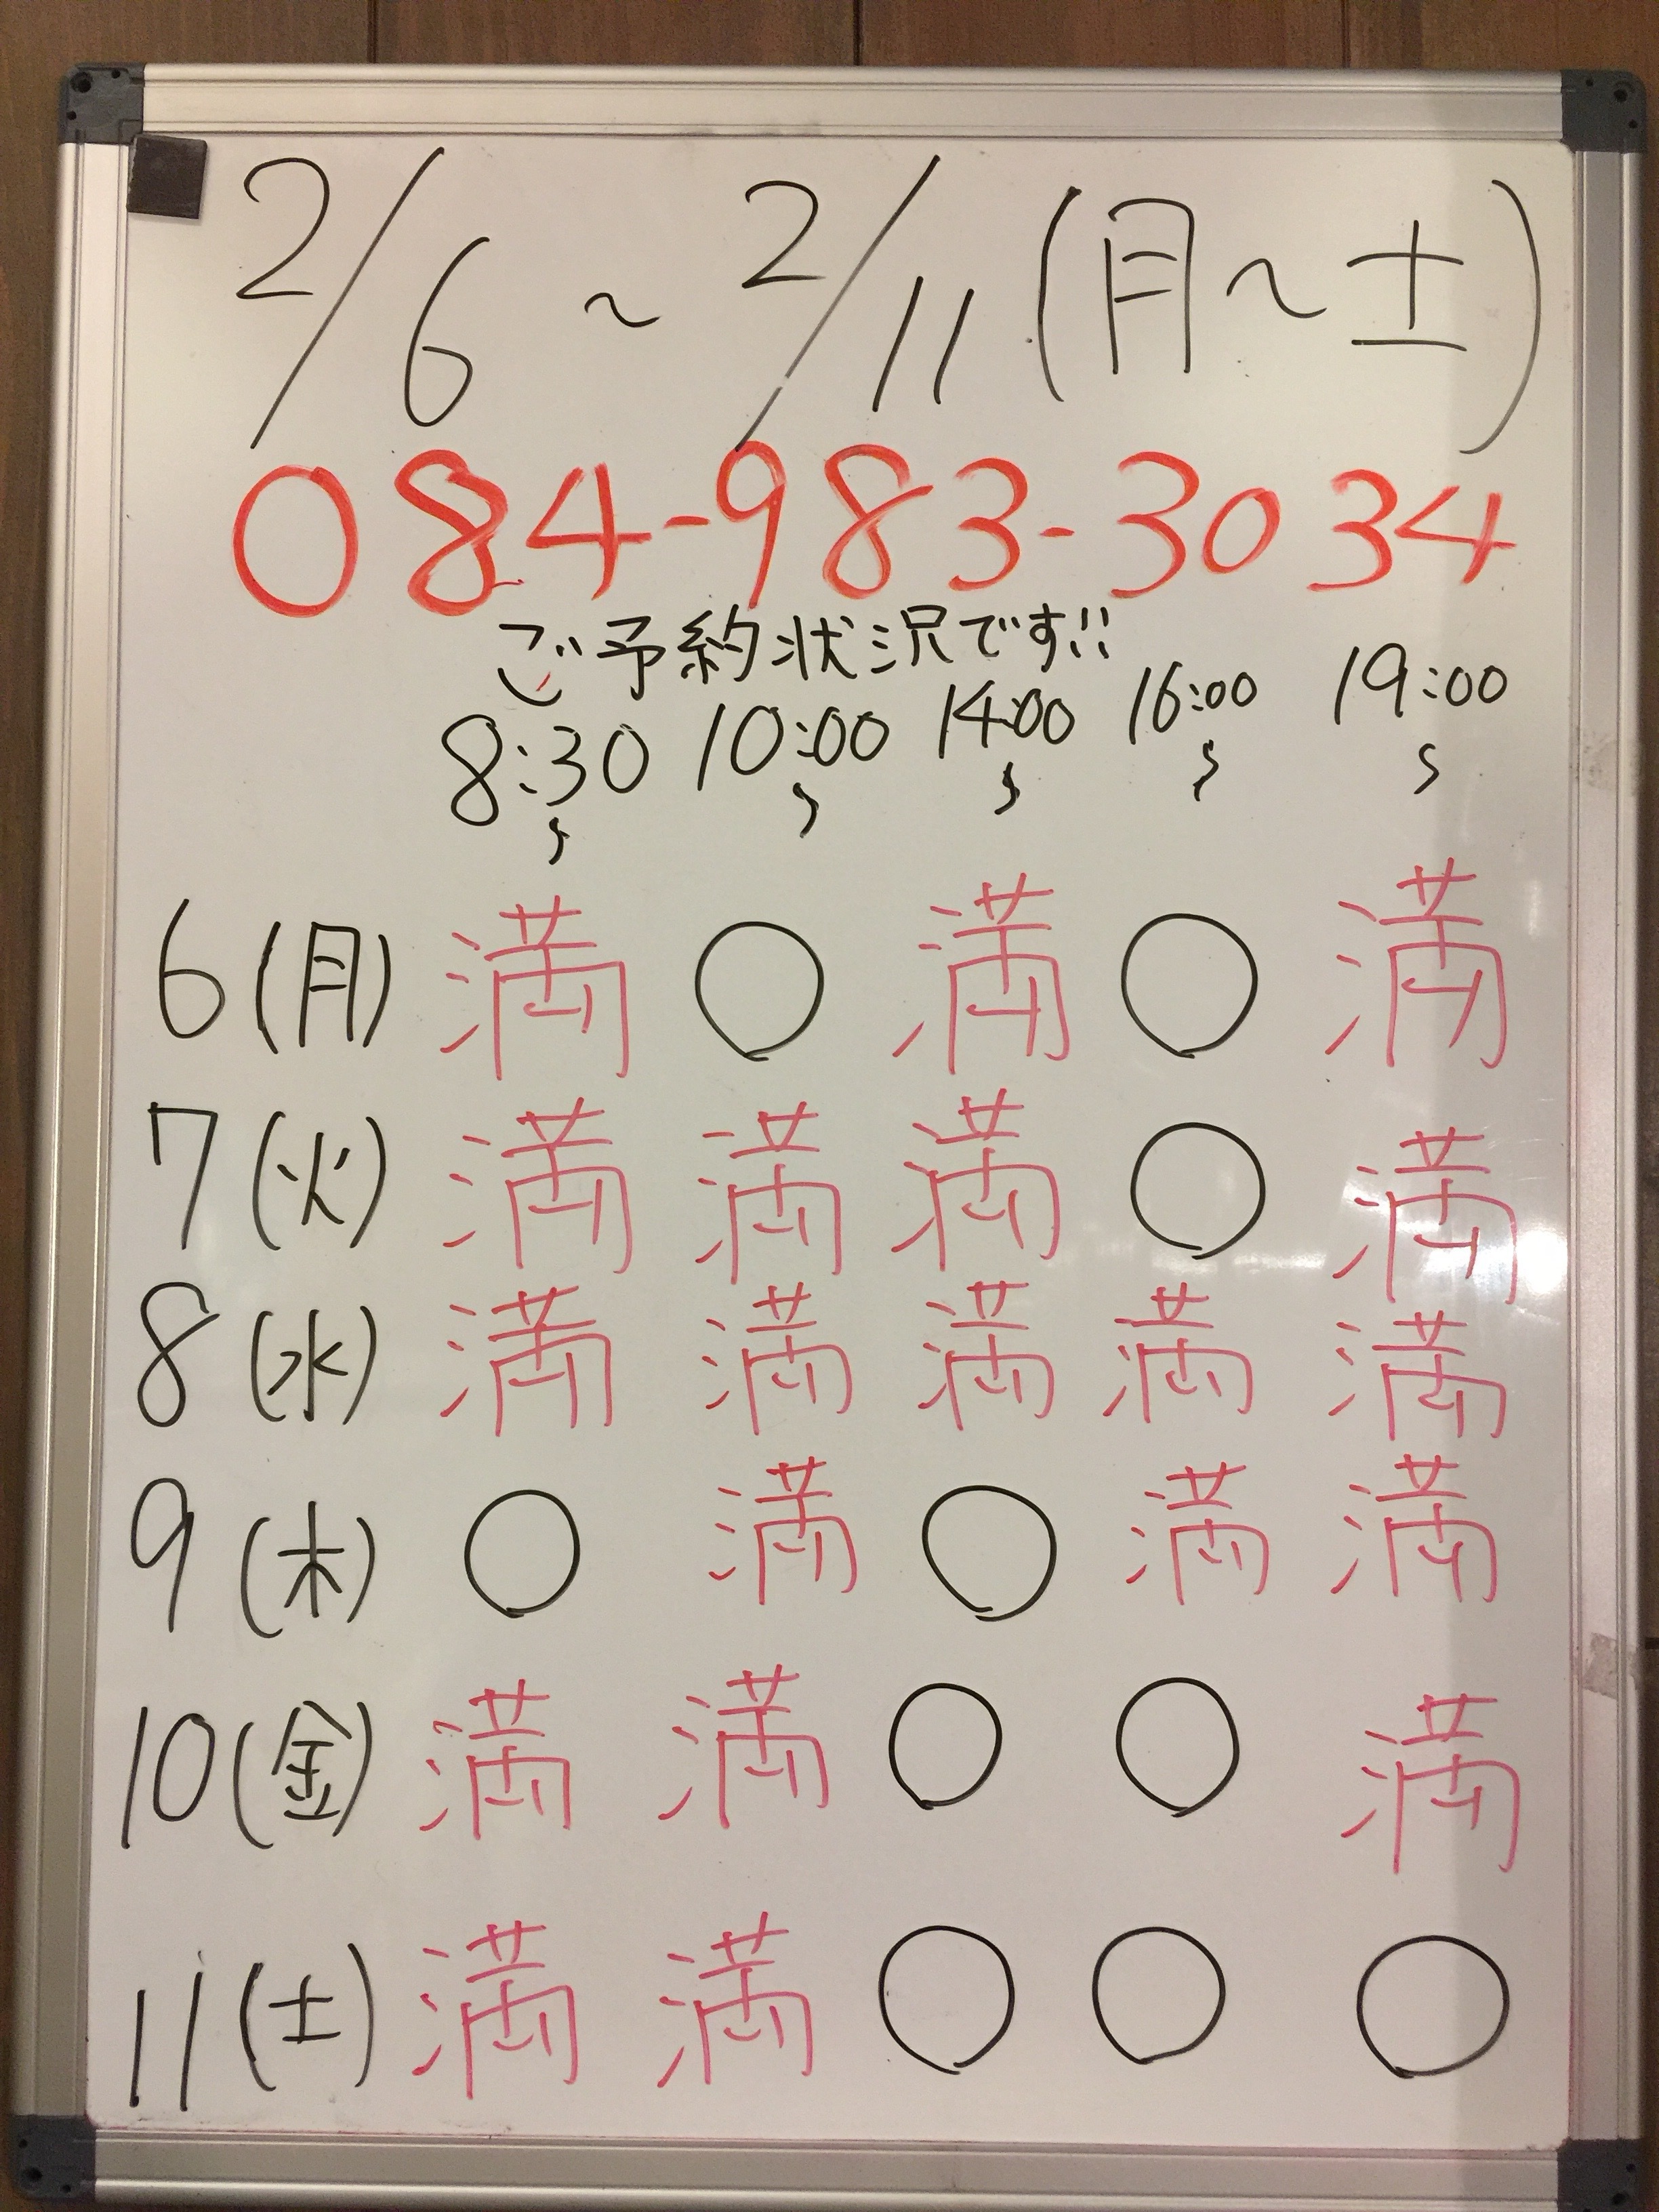 2/6 ~ 2/11 (月~土)
084-983-3034
ご予約状況です!!
8:30 10:00 14:00 16:00 19:00
~ ~ ~ ~ ~
6 (月) 満 ○ 満 ○ 満
7 (火) 満 満 満 ○ 満
8 (水) 満 満 満 満 満
9 (木) ○ 満 ○ 満 満
10 (金) 満 満 ○ ○ 満
11 (土) 満 満 ○ ○ ○